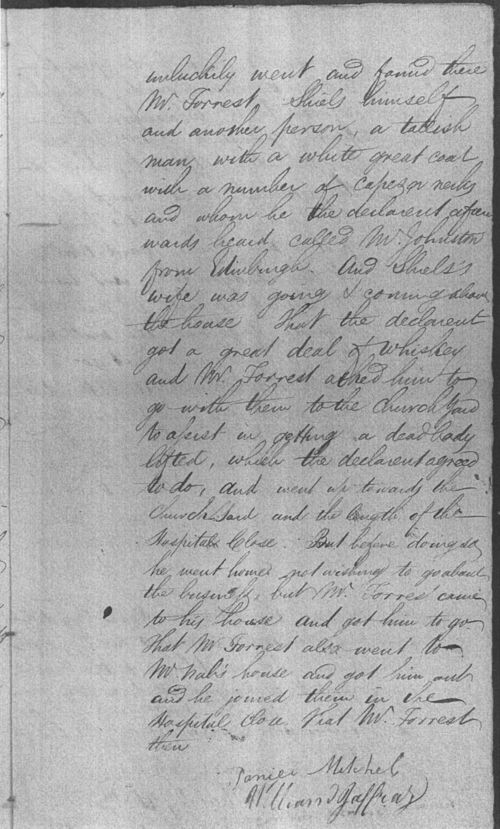 unluckily went and found there
Mr. Forrest Shiels himself
and another person, a tallish
man with a white great coat
with a number of capes or necks
and whom he the declarent after
wards heard called Mr. Johnston
from Edinburgh. And Shiels's
wife was going & coming about
the house That the declarent
got a great deal of whiskey
and Mr. Forrest asked him to
go with them to the Church Yard
to assist in getting a dead body
lifted, which the declarent agreed
to do, and went up towards the
Church Yard and the length of the
Hospital Close But before doing so
he went home not wishing to go about
the business, but Mr. Forrest came
to his house and got him to go
That Mr Forrest also went to
McNab's house and got him out
and he joined them in the
Hospital Close That Mr. Forrest
then
Daniel Mitchel
William Jaffray